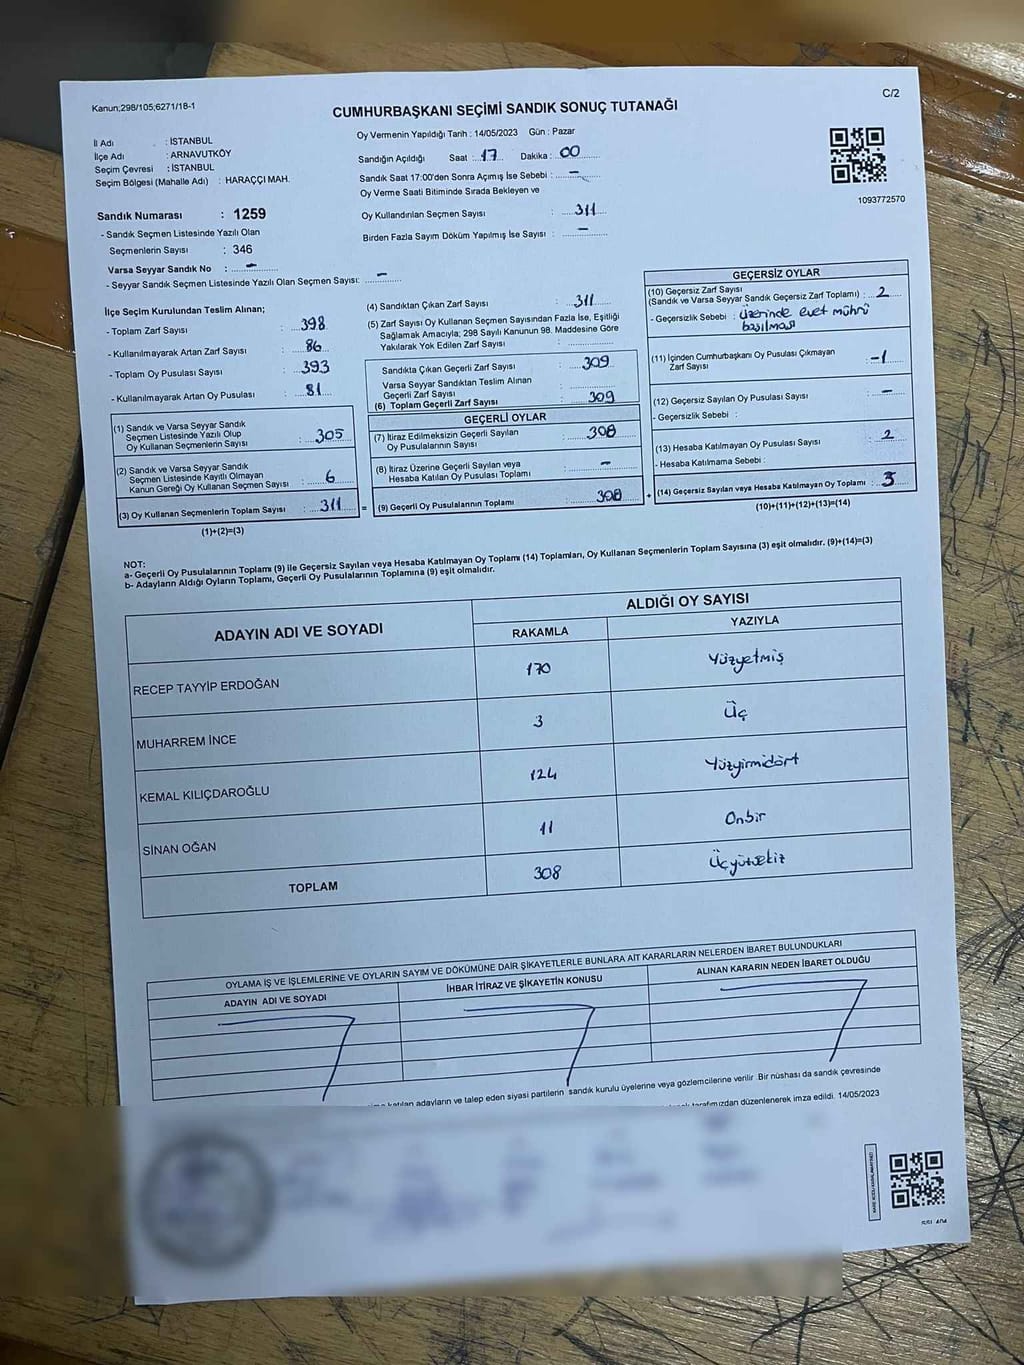 Kanun;298/105;6271/18-1
C/2
CUMHURBAŞKANI SEÇİMİ SANDIK SONUÇ TUTANAĞI
İl Adı : İSTANBUL
İlçe Adı : ARNAVUTKÖY
Seçim Çevresi : İSTANBUL
Seçim Bölgesi (Mahalle Adı) : HARAÇÇI MAH.
Sandık Numarası : 1259
- Sandık Seçmen Listesinde Yazılı Olan
Seçmenlerin Sayısı : 346
Varsa Seyyar Sandık No : –
- Seyyar Sandık Seçmen Listesinde Yazılı Olan Seçmen Sayısı: –
Oy Vermenin Yapıldığı Tarih : 14/05/2023 Gün : Pazar
Sandığın Açıldığı Saat : 17 Dakika : 00
Sandık Saat 17:00'den Sonra Açımış İse Sebebi : –
Oy Verme Saati Bitiminde Sırada Bekleyen ve
Oy Kullandırılan Seçmen Sayısı : 311
Birden Fazla Sayım Döküm Yapılmış İse Sayısı : –
1093772570
İlçe Seçim Kurulundan Teslim Alınan;
- Toplam Zarf Sayısı : 398
- Kullanılmayarak Artan Zarf Sayısı : 86
- Toplam Oy Pusulası Sayısı : 393
- Kullanılmayarak Artan Oy Pusulası : 81
(1) Sandık ve Varsa Seyyar Sandık
Seçmen Listesinde Yazılı Olup
Oy Kullanan Seçmenlerin Sayısı : 305
(2) Sandık ve Varsa Seyyar Sandık
Seçmen Listesinde Kayıtlı Olmayan
Kanun Gereği Oy Kullanan Seçmen Sayısı : 6
(3) Oy Kullanan Seçmenlerin Toplam Sayısı : 311
(1)+(2)=(3)
=
(4) Sandıktan Çıkan Zarf Sayısı : 311
(5) Zarf Sayısı Oy Kullanan Seçmen Sayısından Fazla İse, Eşitliği
Sağlamak Amacıyla; 298 Sayılı Kanunun 98. Maddesine Göre
Yakılarak Yok Edilen Zarf Sayısı :
Sandıkta Çıkan Geçerli Zarf Sayısı : 309
Varsa Seyyar Sandıktan Teslim Alınan
Geçerli Zarf Sayısı :
(6) Toplam Geçerli Zarf Sayısı : 309
GEÇERLİ OYLAR
(7) İtiraz Edilmeksizin Geçerli Sayılan
Oy Pusulalarının Sayısı : 308
(8) İtiraz Üzerine Geçerli Sayılan veya
Hesaba Katılan Oy Pusulası Toplamı : –
(9) Geçerli Oy Pusulalarının Toplamı : 308
+
GEÇERSİZ OYLAR
(10) Geçersiz Zarf Sayısı
(Sandık ve Varsa Seyyar Sandık Geçersiz Zarf Toplamı) : 2
- Geçersizlik Sebebi : üzerinde evet mührü
basılması
(11) İçinden Cumhurbaşkanı Oy Pusulası Çıkmayan
Zarf Sayısı : -1
(12) Geçersiz Sayılan Oy Pusulası Sayısı : –
- Geçersizlik Sebebi :
(13) Hesaba Katılmayan Oy Pusulası Sayısı : 2
- Hesaba Katılmama Sebebi :
(14) Geçersiz Sayılan veya Hesaba Katılmayan Oy Toplamı : 3
(10)+(11)+(12)+(13)=(14)
NOT:
a- Geçerli Oy Pusulalarının Toplamı (9) ile Geçersiz Sayılan veya Hesaba Katılmayan Oy Toplamı (14) Toplamları, Oy Kullanan Seçmenlerin Toplam Sayısına (3) eşit olmalıdır. (9)+(14)=(3)
b- Adayların Aldığı Oyların Toplamı, Geçerli Oy Pusulalarının Toplamına (9) eşit olmalıdır.
ADAYIN ADI VE SOYADI ALDIĞI OY SAYISI
RAKAMLA YAZIYLA
RECEP TAYYİP ERDOĞAN 170 Yüzyetmiş
MUHARREM İNCE 3 Üç
KEMAL KILIÇDAROĞLU 124 Yüzyirmidört
SİNAN OĞAN 11 Onbir
TOPLAM 308 Üçyüzsekiz
OYLAMA İŞ VE İŞLEMLERİNE VE OYLARIN SAYIM VE DÖKÜMÜNE DAİR ŞİKAYETLERLE BUNLARA AİT KARARLARIN NELERDEN İBARET BULUNDUKLARI
ADAYIN ADI VE SOYADI İHBAR İTİRAZ VE ŞİKAYETİN KONUSU ALINAN KARARIN NEDEN İBARET OLDUĞU
katılan adayların ve talep eden siyasi partilerin sandık kurulu üyelerine veya gözlemcilerine verilir. Bir nüshası da sandık çevresinde
tarafımızdan düzenlenerek imza edildi. 14/05/2023